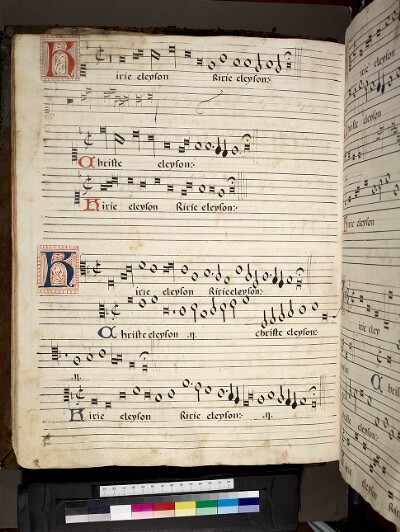 Kirie eleyson Kirie eleyson:
Christe eleyson:
Kirie eleyson Kirie eleyson:
Kirie eleyson Kirie eleyson:
Christe eleyson .ij. christe eleyson:
.ij.
Kirie eleyson Kirie eleyson: .ij.
irie eleyson
christe eleyson
Kirie eleyson
irie eley
Ch
eleyson